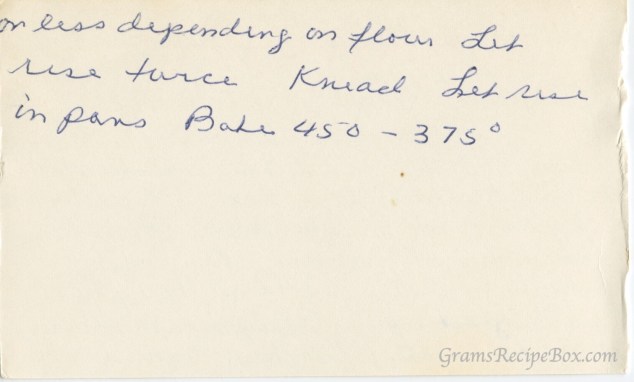 or less depending on flour Let
rise twice Knead Let rise
in pans Bake 450 - 375°
GramsRecipeBox.com